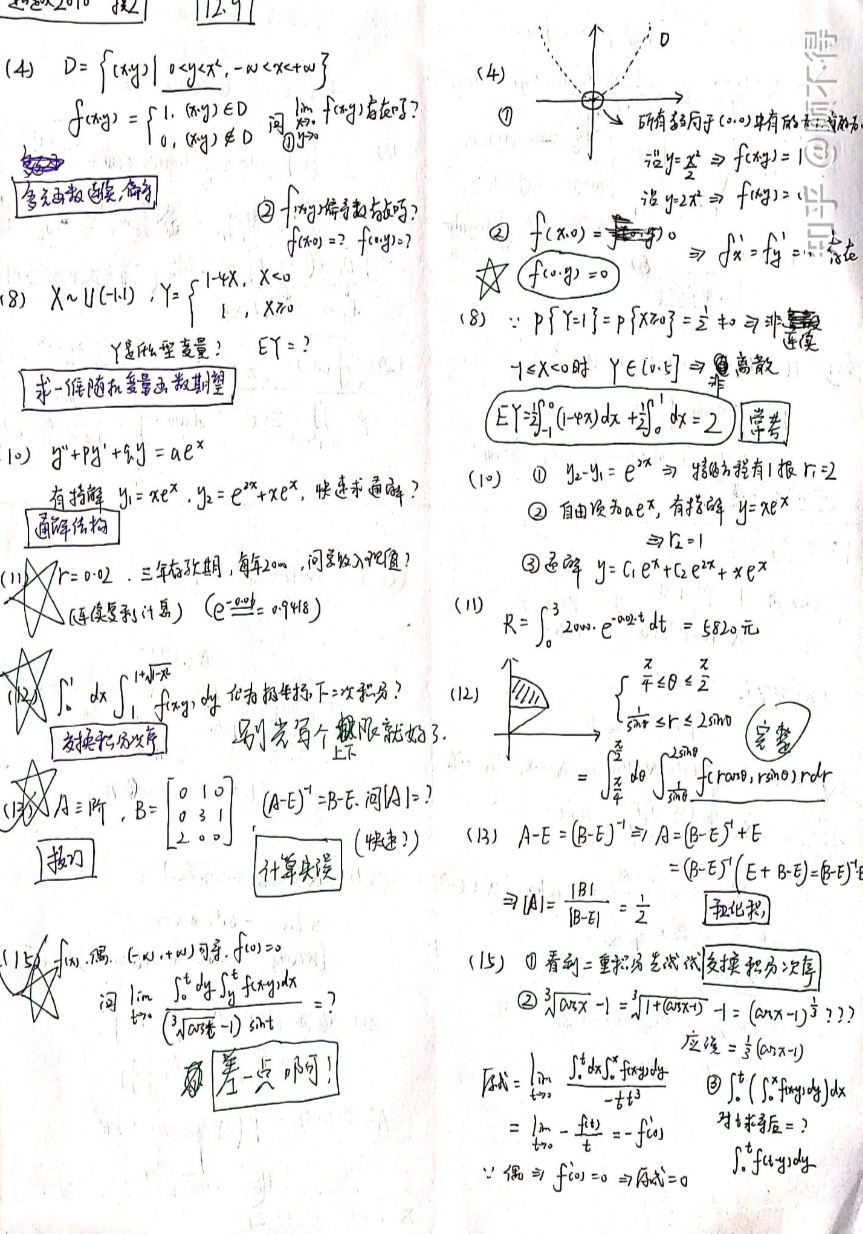 12.9
(4) D={(x,y)| 0<y<x², -∞<x<+∞}
f(x,y)={1, (x,y)∈D
0, (x,y)∉D 问 ① lim x→0 y→0 f(x,y)存在吗?
多元函数连续,偏导
② f(x,y)偏导数存在吗?
f(x,0)=? f(0,y)=?
(8) X~U(-1,1), Y={1-4X, X<0
1, X≥0
EY=?
求一维随机变量函数期望
(10) y''+py'+qy=aeˣ
有特解 y₁=xeˣ, y₂=e²ˣ+xeˣ, 快速求通解?
通解结构
(11) r=0.02. 三年存款期,每年2000,
(连续复利计算) (e^-0.06=0.9418)
(12) ∫₀¹ dx ∫₁^(1+√(1-x²)) f(x,y) dy 化为极坐标下二次积分?
交换积分次序
别光写个上下限就好了.
(13) A三阶, B=[0 1 0
0 3 1
2 0 0] (A-E)⁻¹=B-E. 问|A|=?
(快速?)
计算失误
(15) f(x).偶. (-∞,+∞)可导. f(0)=0
问 lim t→0 ∫₀ᵗdy∫ᵧᵗf(x-y)dx / (³√cost -1) sint =?
差一点啊!
(4)
D
①
沿y=x²/2 ⇒ f(x,y)=1
沿 y=2x² ⇒ f(x,y)=
② f(x,0)=0
f(0,y)=0
⇒ f'x=f'y= 存在
(8) ∵ P{Y=1}=P{X≥0}=½≠0 ⇒ 非连续
-1≤X<0时 Y∈[0.5] ⇒ 非离散
EY=½∫₋₁⁰(1-4x)dx+½∫₀¹dx=2 常考
(10) ① y₂-y₁=e²ˣ ⇒ 特征方程有1根 r₁=2
② 自由项为aeˣ, 有特解 y=xeˣ
⇒ r₂=1
③ 通解 y=C₁eˣ+C₂e²ˣ+xeˣ
(11)
R=∫₀³ 2000·e^(-0.02·t) dt = 5820元
(12)
{π/4≤θ≤π/2
1/sinθ≤r≤2sinθ
完整
=∫_(π/4)^(π/2) dθ ∫_(1/sinθ)^(2sinθ) f(rcosθ, rsinθ) rdr
(13) A-E=(B-E)⁻¹ ⇒ A=(B-E)⁻¹+E
=(B-E)⁻¹(E+B-E)=(B-E)⁻¹B
⇒|A|=|B|/|B-E|=½
和化积
(15) ① 看到二重积分先试试交换积分次序
② ³√cosx -1=³√(1+(cosx-1)) -1=(cosx-1)^⅓???
应该=⅓(cosx-1)
原式=lim t→0 ∫₀ᵗdx∫₀ˣf(x-y)dy / -⅙t³
③ ∫₀ᵗ(∫₀ˣf(x-y)dy)dx
对t求导后=?
∫₀ᵗf(t-y)dy
=lim t→0 -f(t)/t=-f'(0)
∵ 偶 ⇒ f'(0)=0 ⇒原式=0
知乎 @阿不得